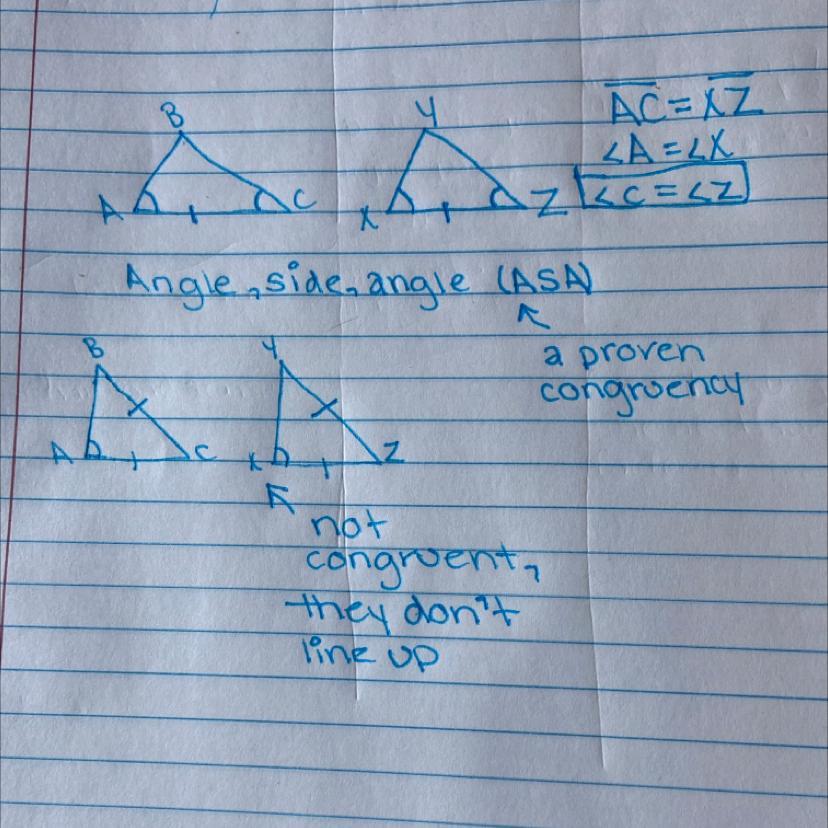 B
Y
A C X Z
AC = XZ
∠A = ∠X
∠C = ∠Z
Angle, side, angle (ASA)
a proven
congruency
B
Y
A C X Z
not
congruent,
they don't
line up